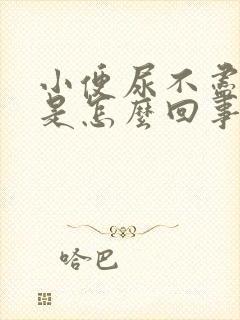 小便尿不盡
是怎麼回事
哈巴